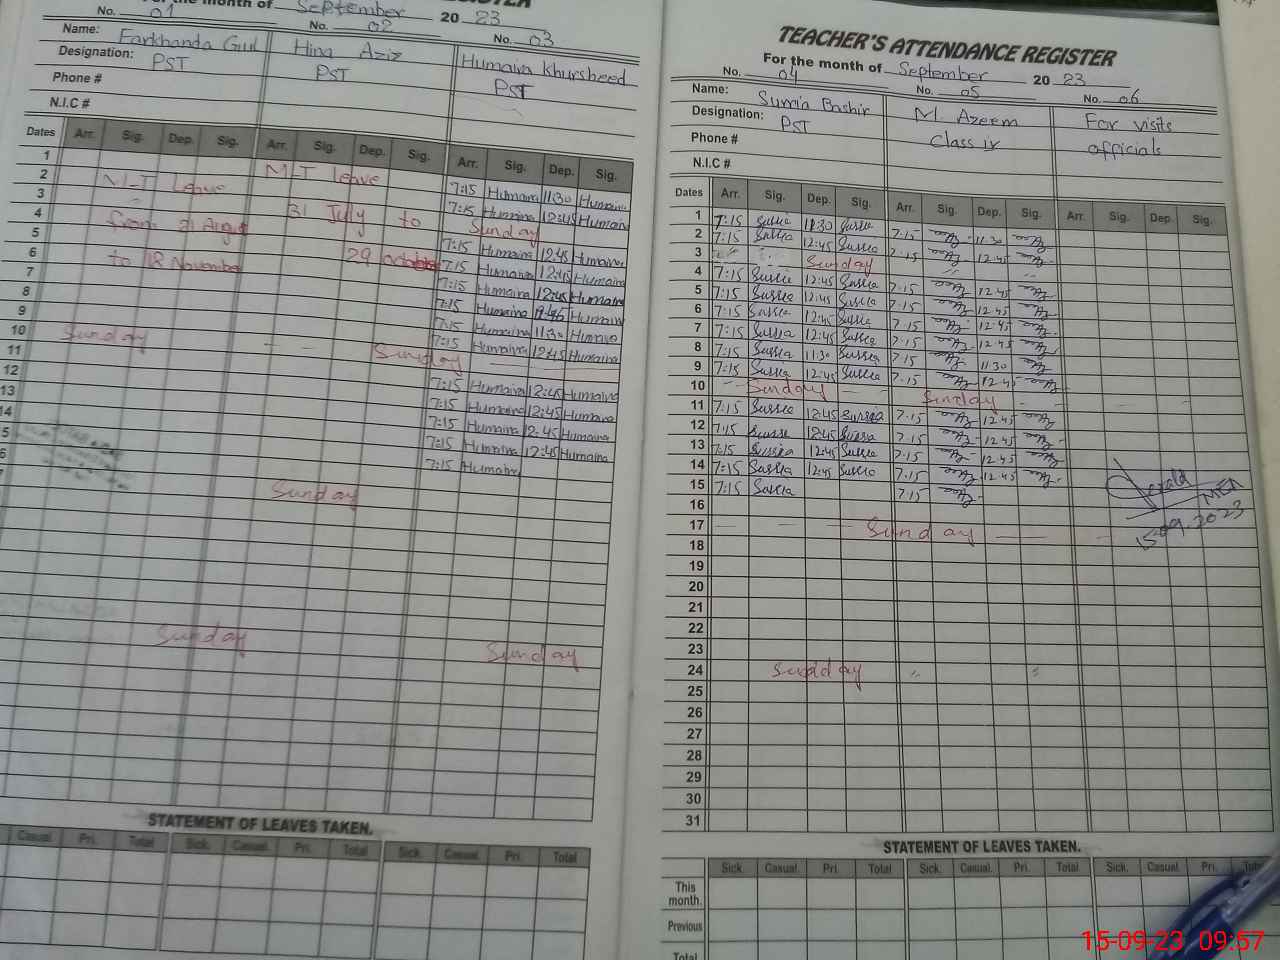 For the month of September 20 23
No. 01 No. 02 No. 03
Name: Farkhanda Gul Hina Aziz Humaira Khursheed
Designation: PST PST PST
Phone #
N.I.C #
Dates Arr. Sig. Dep. Sig. Arr. Sig. Dep. Sig. Arr. Sig. Dep. Sig.
1 7:15 Humaira 11:30 Humaira
2 M-T Leave M-T leave 7:15 Humaira 12:45 Humaira
3 Sunday
4 from 21 August 31 July to 7:15 Humaira 12:45 Humaira
5 7:15 Humaira 12:45 Humaira
6 to 18 November 29 october 7:15 Humaira 12:45 Humaira
7 7:15 Humaira 12:45 Humaira
8 7:15 Humaira 11:30 Humaira
9 7:15 Humaira 12:45 Humaira
10 Sunday Sunday
11 7:15 Humaira 12:45 Humaira
12 7:15 Humaira 12:45 Humaira
13 7:15 Humaira 12:45 Humaira
14 7:15 Humaira 12:45 Humaira
5 7:15 Humaira
6
Sunday
Sunday Sunday
STATEMENT OF LEAVES TAKEN.
Casual. Pri. Total Sick. Casual. Pri. Total Sick. Casual. Pri. Total
TEACHER'S ATTENDANCE REGISTER
For the month of September 20 23
No. 04 No. 05 No. 06
Name: Sumia Bashir M. Azeem For visits
Designation: PST Class iv officials
Phone #
N.I.C #
Dates Arr. Sig. Dep. Sig. Arr. Sig. Dep. Sig. Arr. Sig. Dep. Sig.
1 7:15 11:30 7.15 11.30
2 7:15 12:45 7.15 12.45
3 Sunday
4 7:15 12:45 7.15 12.45
5 7:15 12:45 7.15 12.45
6 7:15 12:45 7.15 12.45
7 7:15 12:45 7.15 12.45
8 7:15 11:30 7.15 11.30
9 7:15 12:45 7.15 12.45
10 Sunday Sunday
11 7:15 12:45 7.15 12.45
12 7:15 12:45 7.15 12.45
13 7:15 12:45 7.15 12.45
14 7:15 12:45 7.15 12.45
15 7:15 7.15
16 MEA
17 Sunday 15-09-2023
18
19
20
21
22
23
24 Sunday
25
26
27
28
29
30
31
STATEMENT OF LEAVES TAKEN.
Sick. Casual. Pri. Total Sick. Casual. Pri. Total Sick. Casual. Pri.
This
month.
Previous
Total
15-09-23 09:57